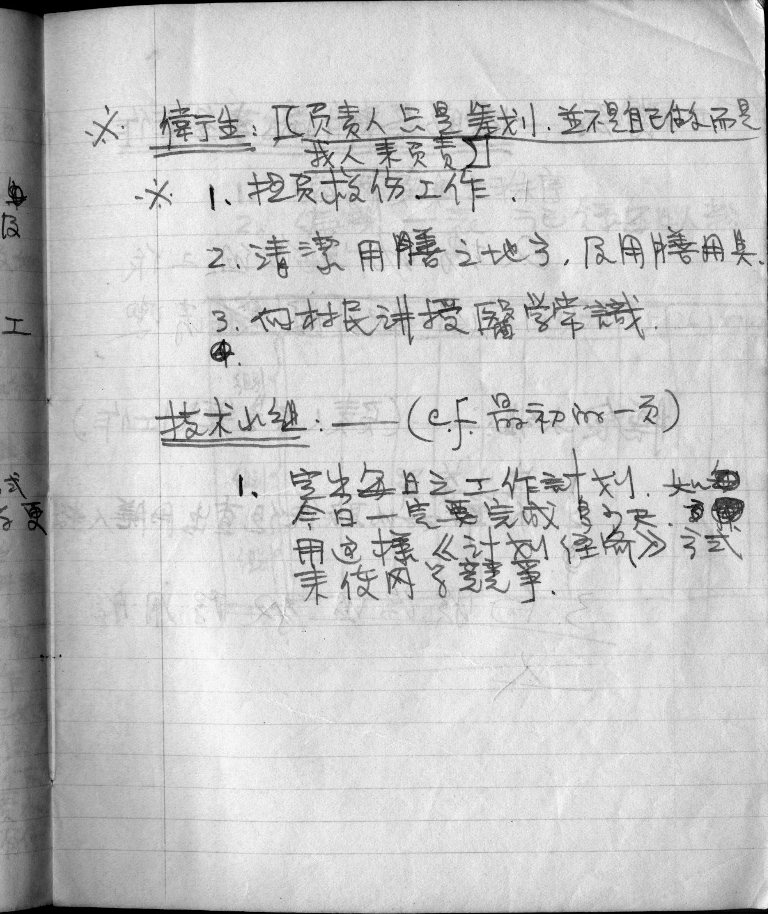 ※ 衛生：[负責人只是筹划，並不是自己做，而是
找人来负責]
※ 1、担负救伤工作．
2、清潔用膳之地方，及用膳用具．
3、向村民讲授醫学常識．
4.
技术小组：——（c.f. 最初的一页）
1、定出每日之工作計划．如
今日一定要完成多少尺．
用这樣《计划经济》方式
来使同学競爭．
及
工
式
更